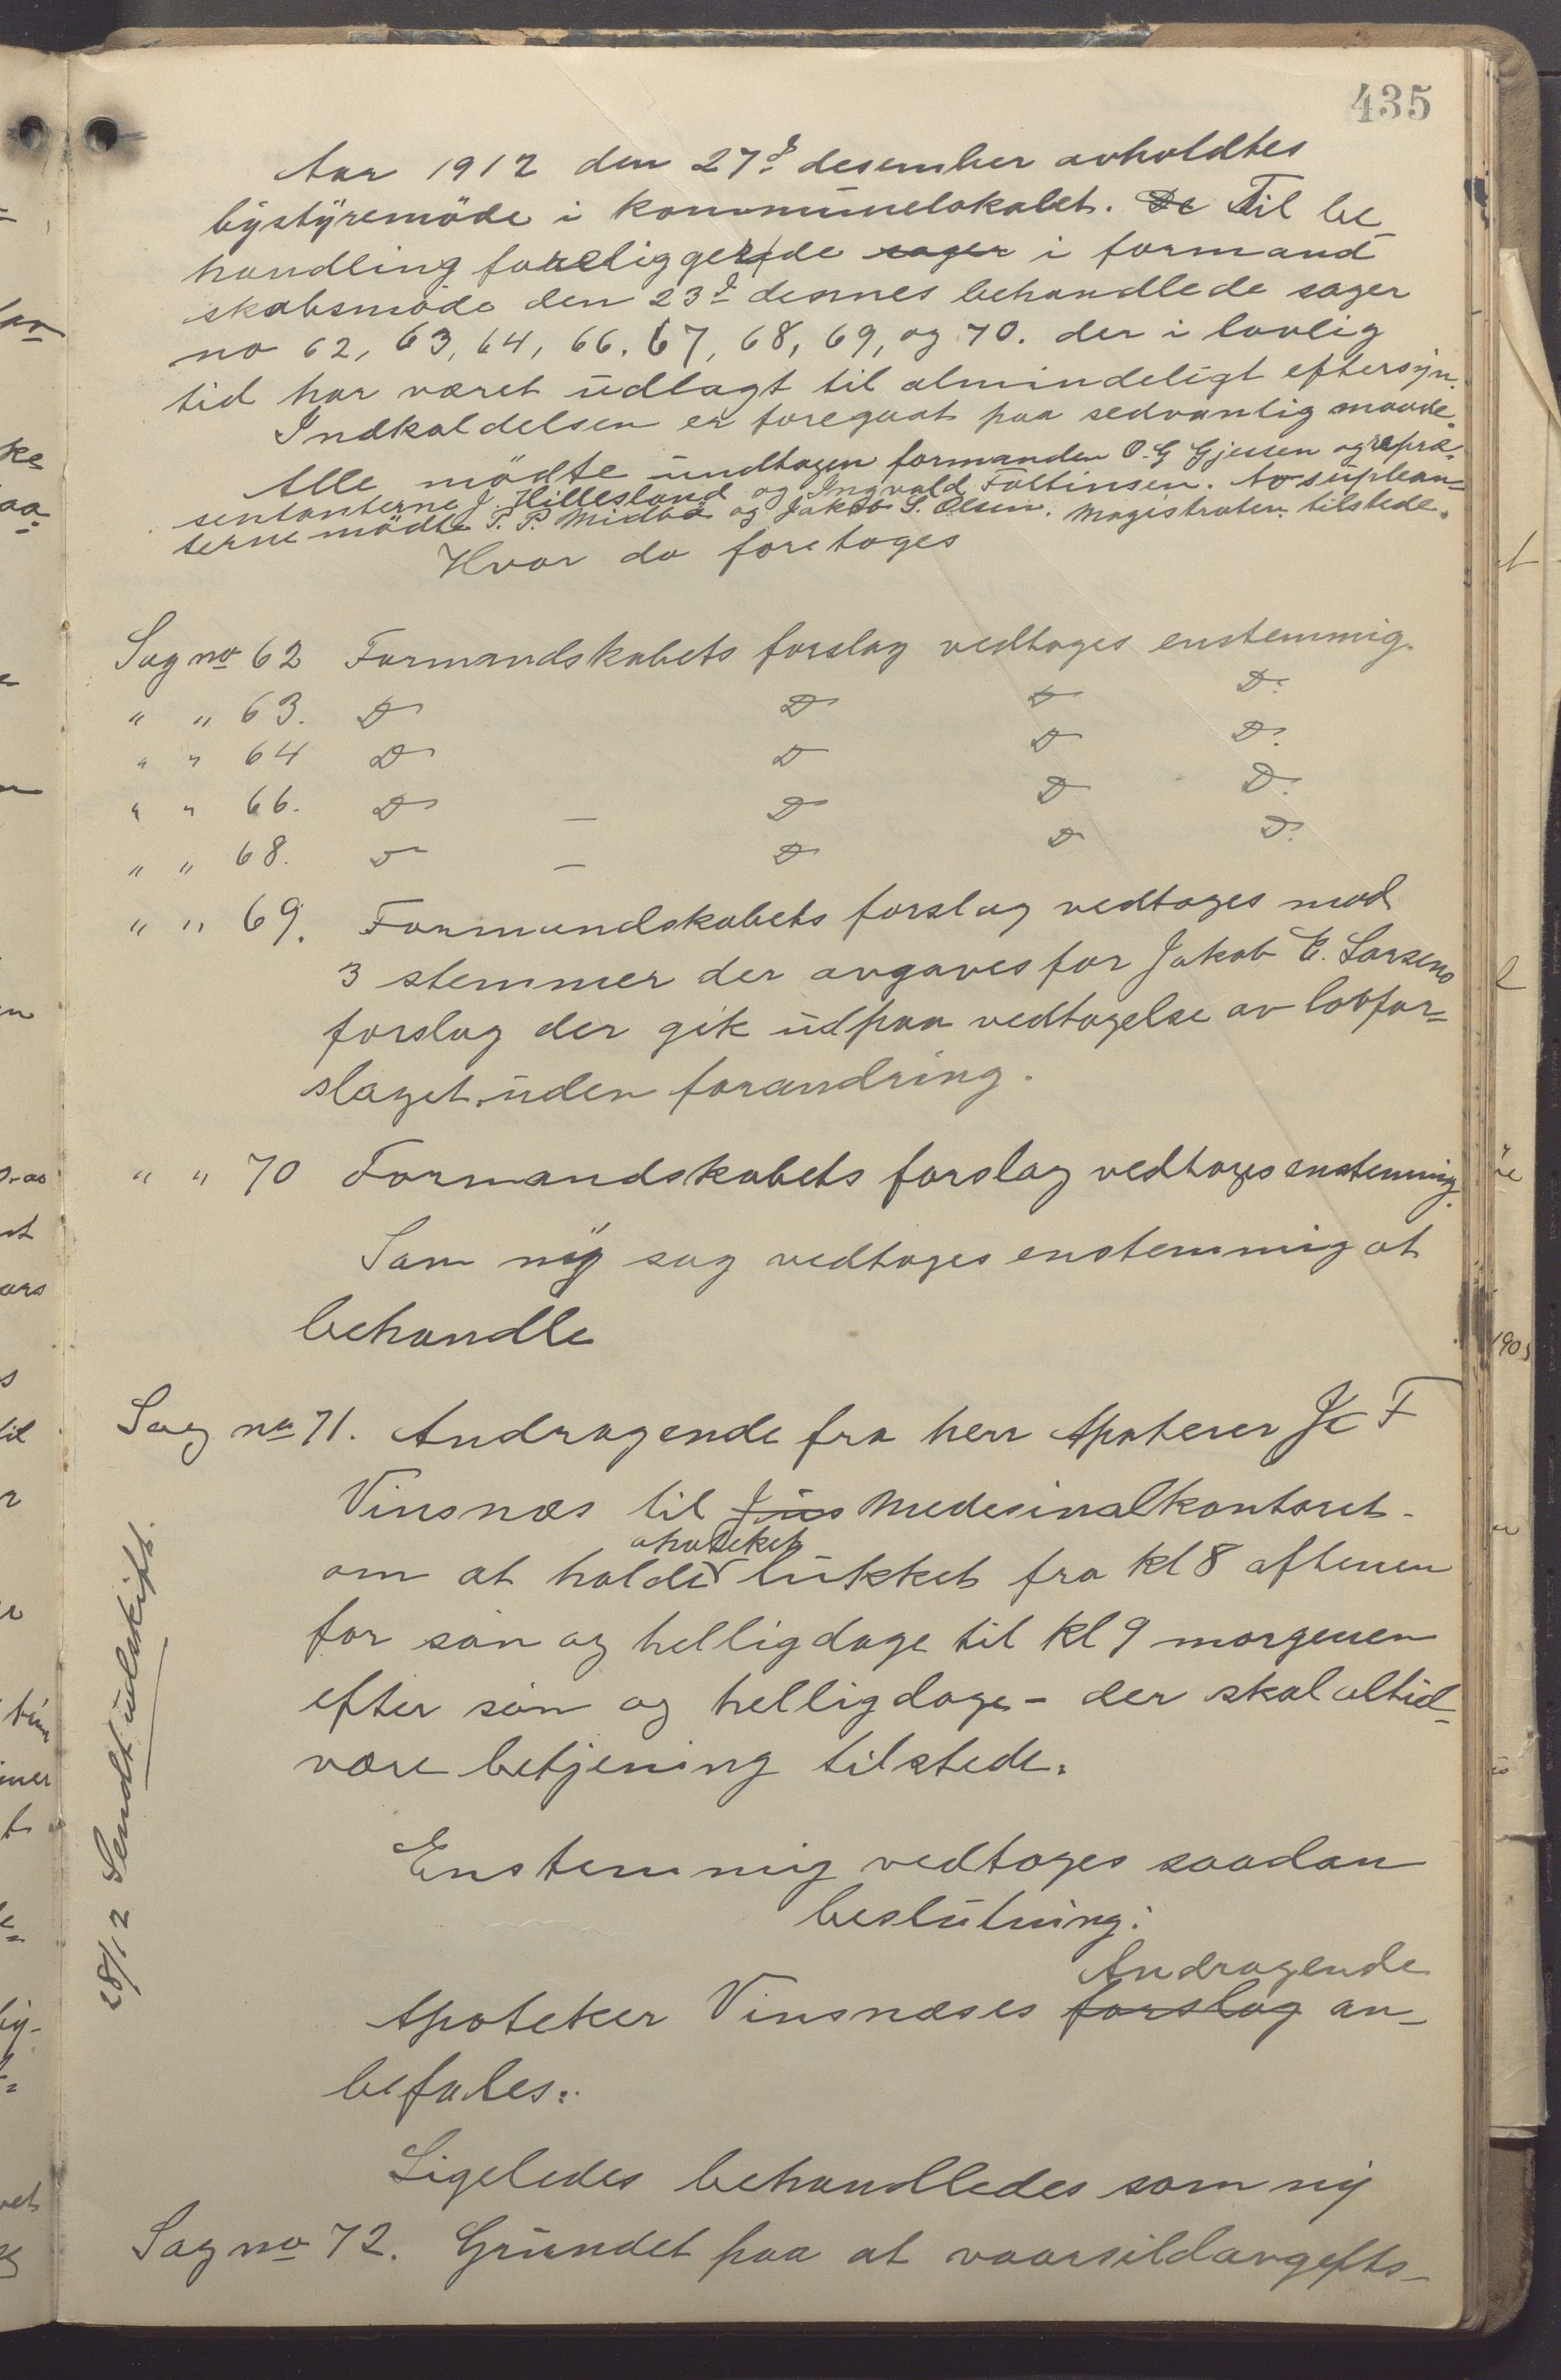 435
Aar 1912 den 27d desember avholdtes
bystyremöde i kommunelokalet. De Til be
handling foreliggerde sager i formand
skabsmöde den 23d dennes behandlede sager
no 62, 63, 64, 66. 67, 68, 69, og 70. der i lovlig
tid har været udlagt til almindeligt eftersyn.
Indkaldelsen er foregaat paa sedvanlig maade.
Alle mödte undtagen formanden O. G Gjessen og repræ-
sentanterne J. Hillesland og Ingvald Foltinsen. Av suplean=
terne mödte T. P. Midbö og Jakob S. Olsen. Magistraten tilstede.
Hvor da foretages
Sag no 62 Formandskabets forslag vedtages enstemmig.
" " 63. D D D D.
" " 64 D D D D.
" " 66. D — D D D.
" " 68. D — D D D.
" " 69. Formandskabets forslag vedtages mod
3 stemmer der avgaves for Jakob E. Larsens
forslag der gik ud paa vedtagelse av lovfor=
slaget uden forandring.
" " 70 Formandskabets forslag vedtages enstemmig.
Som ny sag vedtages enstemmig at
behandle
Sag no 71. Andragende fra herr Apoterer F
Vinsnæs til Jus Medesinalkontoret-
apoteket
om at holde lukket fra kl 8 aftenen
for sön og helligdage til kl 9 morgenen
efter sön og helligdage - der skal altid
være betjening tilstede.
Enstemmig vedtages saadan
beslutning:
Andragende
Apoteker Vinsnæses forslag an-
befales.
28/12 Sendt udskrift.
Ligeledes behandledes som ny
Sag no 72. Grundet paa at vaarsildavgifts-